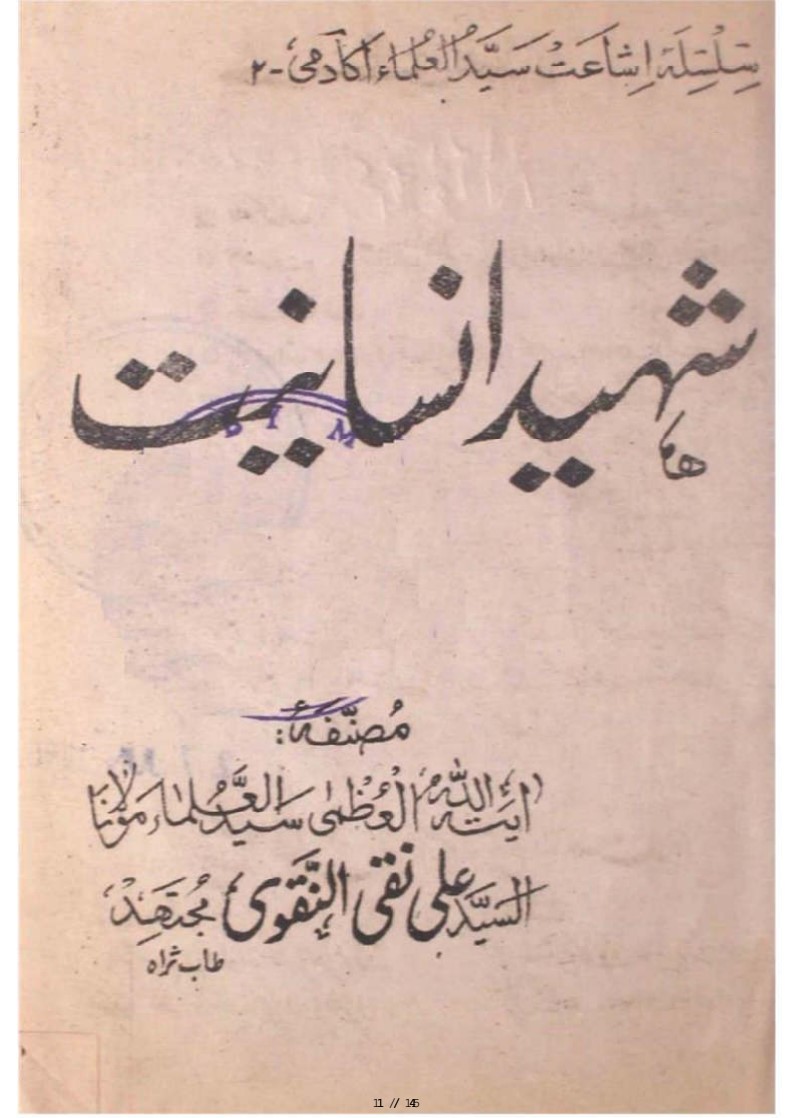 سِلْسِلَۂ اِشَاعَتْ سَیَّدُ العُلمَاء اکَادَمِی - ۲
شہید انسانیت
مُصَنَّفہٗ:
آیَتہ اللہ الْعُظْمٰی سَیّدُ العُلَماء مَوْلَانَا
السَیَّد علی نقی النَّقَوِی مُجْتَهِدْ
طاب ثراہ
D I M
11 // 145